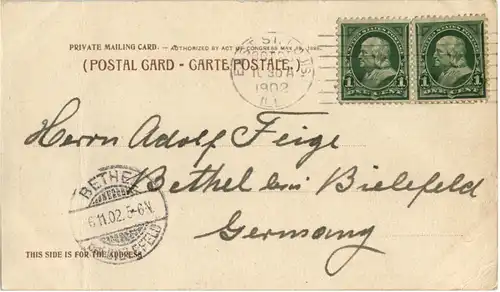 PRIVATE MAILING CARD. — AUTHORIZED BY ACT OF CONGRESS MAY 19, 1898.
(POSTAL CARD - CARTE POSTALE.)
EAST ST. LOUIS
11 30 A
1902
ILL.
1 ONE CENT 1
1 ONE CENT 1
Herrn Adolf Feige
Bethel bei Bielefeld
Germany
BETHEL
6.11.02. 5-6N.
THIS SIDE IS FOR THE ADDRESS